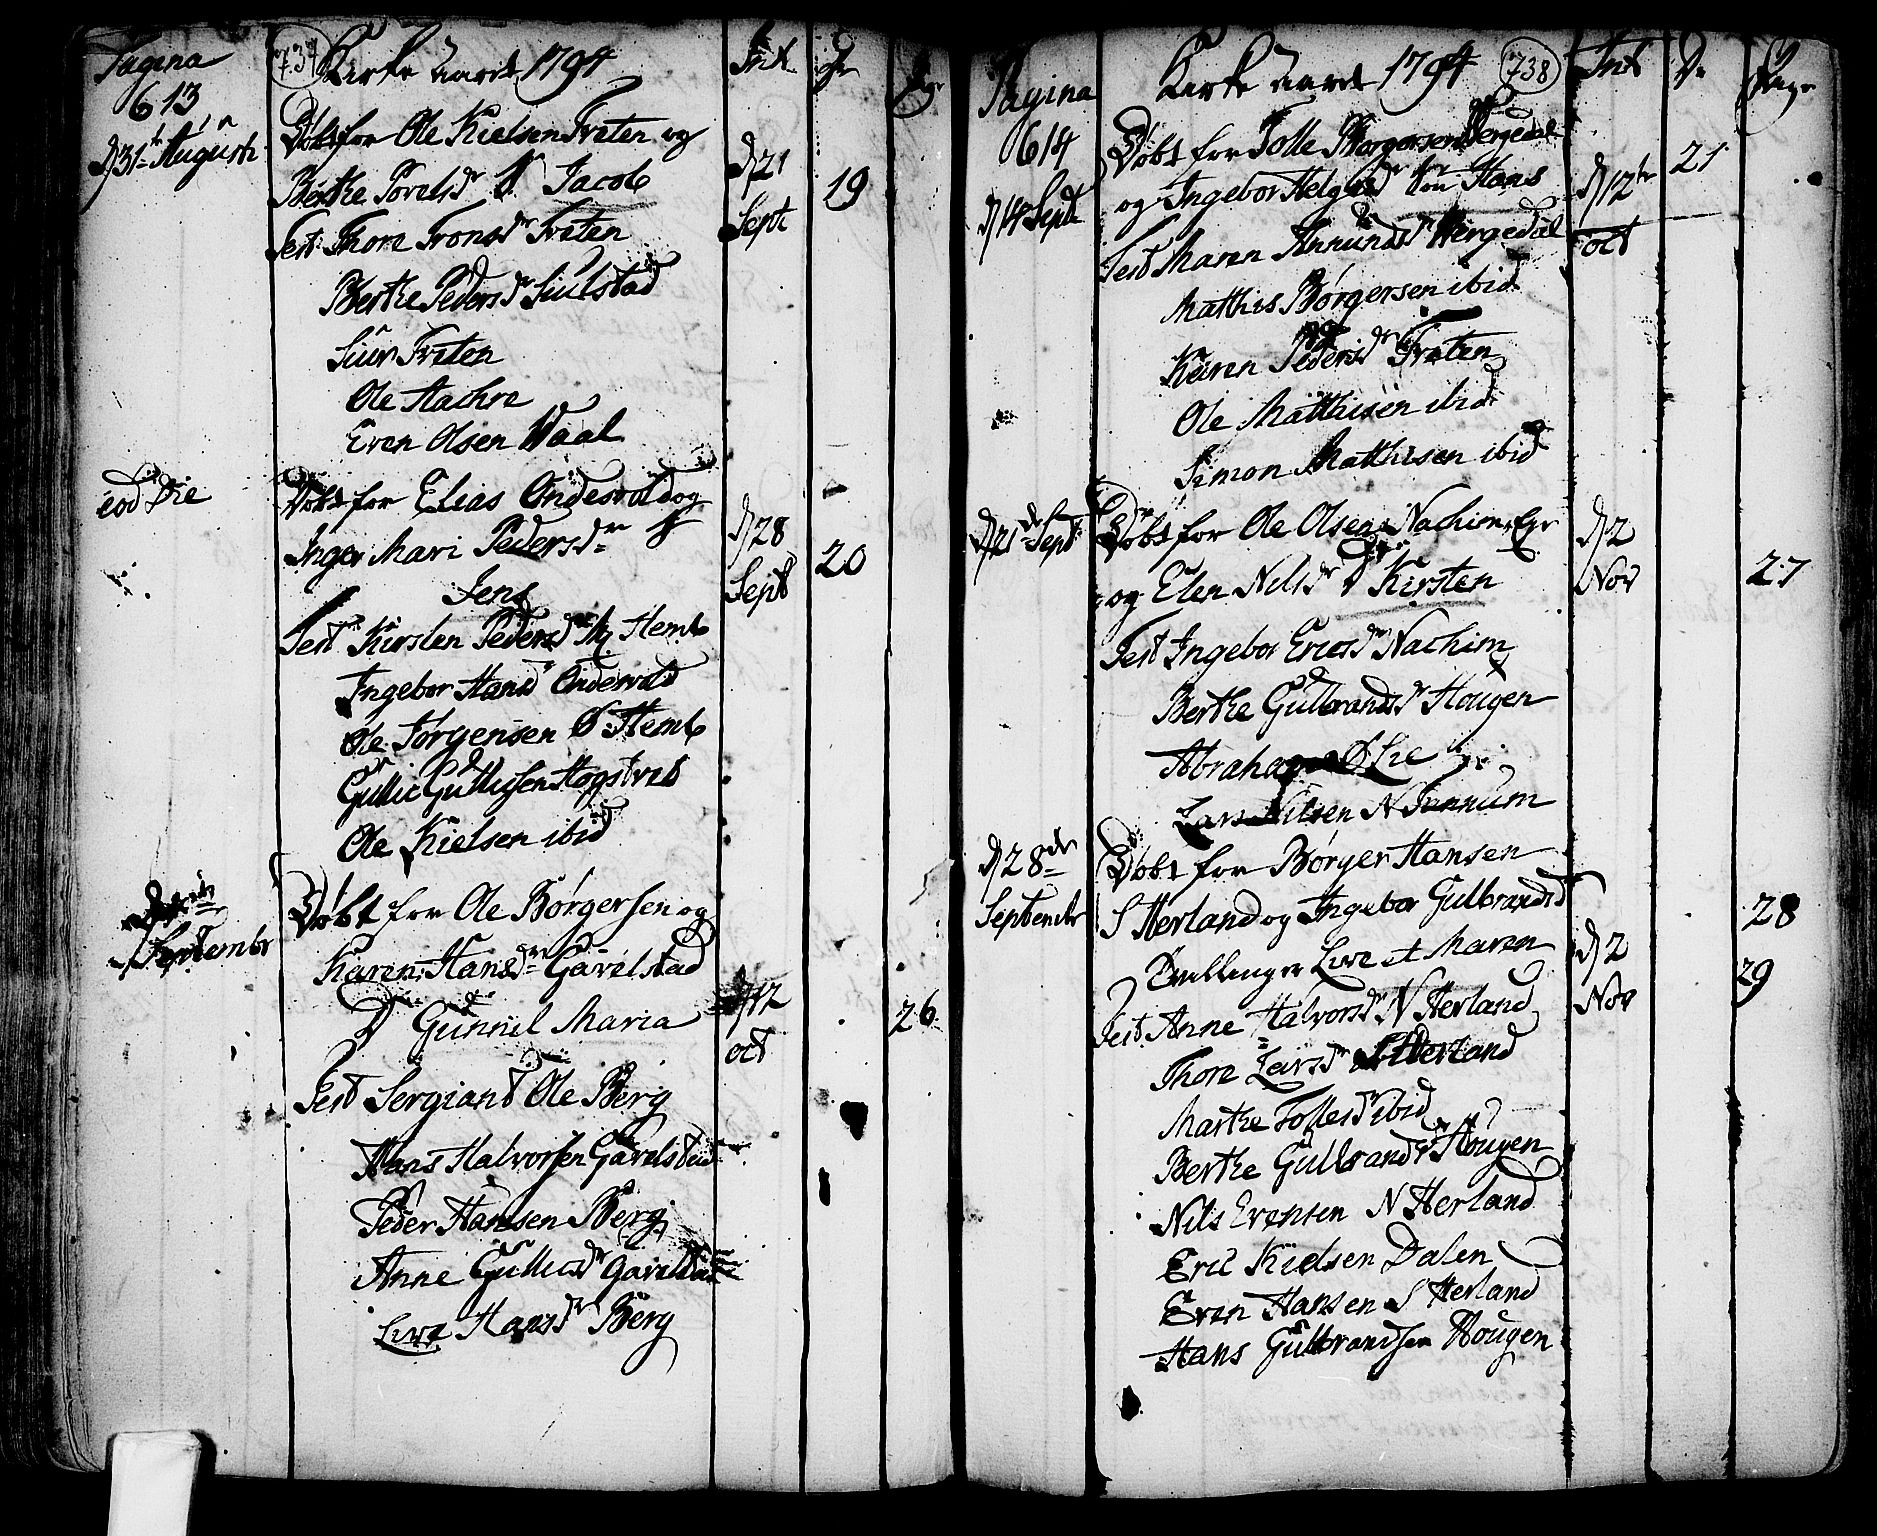 Pagina
613
737
Kirke Aaret 1794
Int
Dr
Pige
d 31te Augusti
Døbt for Ole Kielsen Traten og
Berthe Povelsdr S Jacob
d 21
Sept
19
Test Thore Tronsdr Traten
Berthe Pedersdr Siulstad
Siur Traten
Ole Aachre
Even Olsen Waal
eod Die
Døbt for Elias Ondesvald og
Inger Mari Pedersdr S
Jens
d 28
Sept
20
Test Kirsten Pedersdr Hemb
Ingebor Hansdr Ondesvald
Ole Jørgensen Ø Hemb
Gullic Gullicsen Hogstvet
Ole Kielsen ibid
Septembr
Døbt for Ole Børgersen og
Karen Hansdr Gavelstad
D Gunnil Maria
d 12
oct
26
Test Sergiant Ole Berg
Hans Halvorsen Gavelstad
Peder Hansen Berg
Anne Gullicsdr Gavelstad
Live Hansdr Berg
Pagina
614
Kirke Aaret 1794
738
Int
Dr
Pige
d 14 Sept
Døbt for Tolle Børgersen Wergedal
og Ingebor Helgesdr Søn Hans
d 12te
oct
21
Test Maren Amundsdr Wergedal
Matthis Børgersen ibid
Karen Pedersdr Traten
Ole Matthisen ibid
Simon Matthisen ibid
d 21de Sept
Døbt for Ole Olsen Nachim Eyr
og Elen Nilsdr D Kirsten
d 2
Nov
27
Test Ingebor Ericsdr Nachim
Berthe Gulbrandsdr Hougen
Abraham Ø Lie
Lars Nilsen N Sunnum
d 28de
Septembr
Døbt for Børger Hansen
S Herland og Ingebor Gulbrandsd
Tvillinger Live et Maren
d 2
Nov
28
29
Test Anne Halvorsdr N Herland
Thore Larsdr S Herland
Marthe Tollesdr ibid
Berthe Gulbrandsdr Hougen
Nils Evensen N Herland
Eric Kielsen Dalen
Even Hansen S Herland
Hans Gulbrandsen Hougen